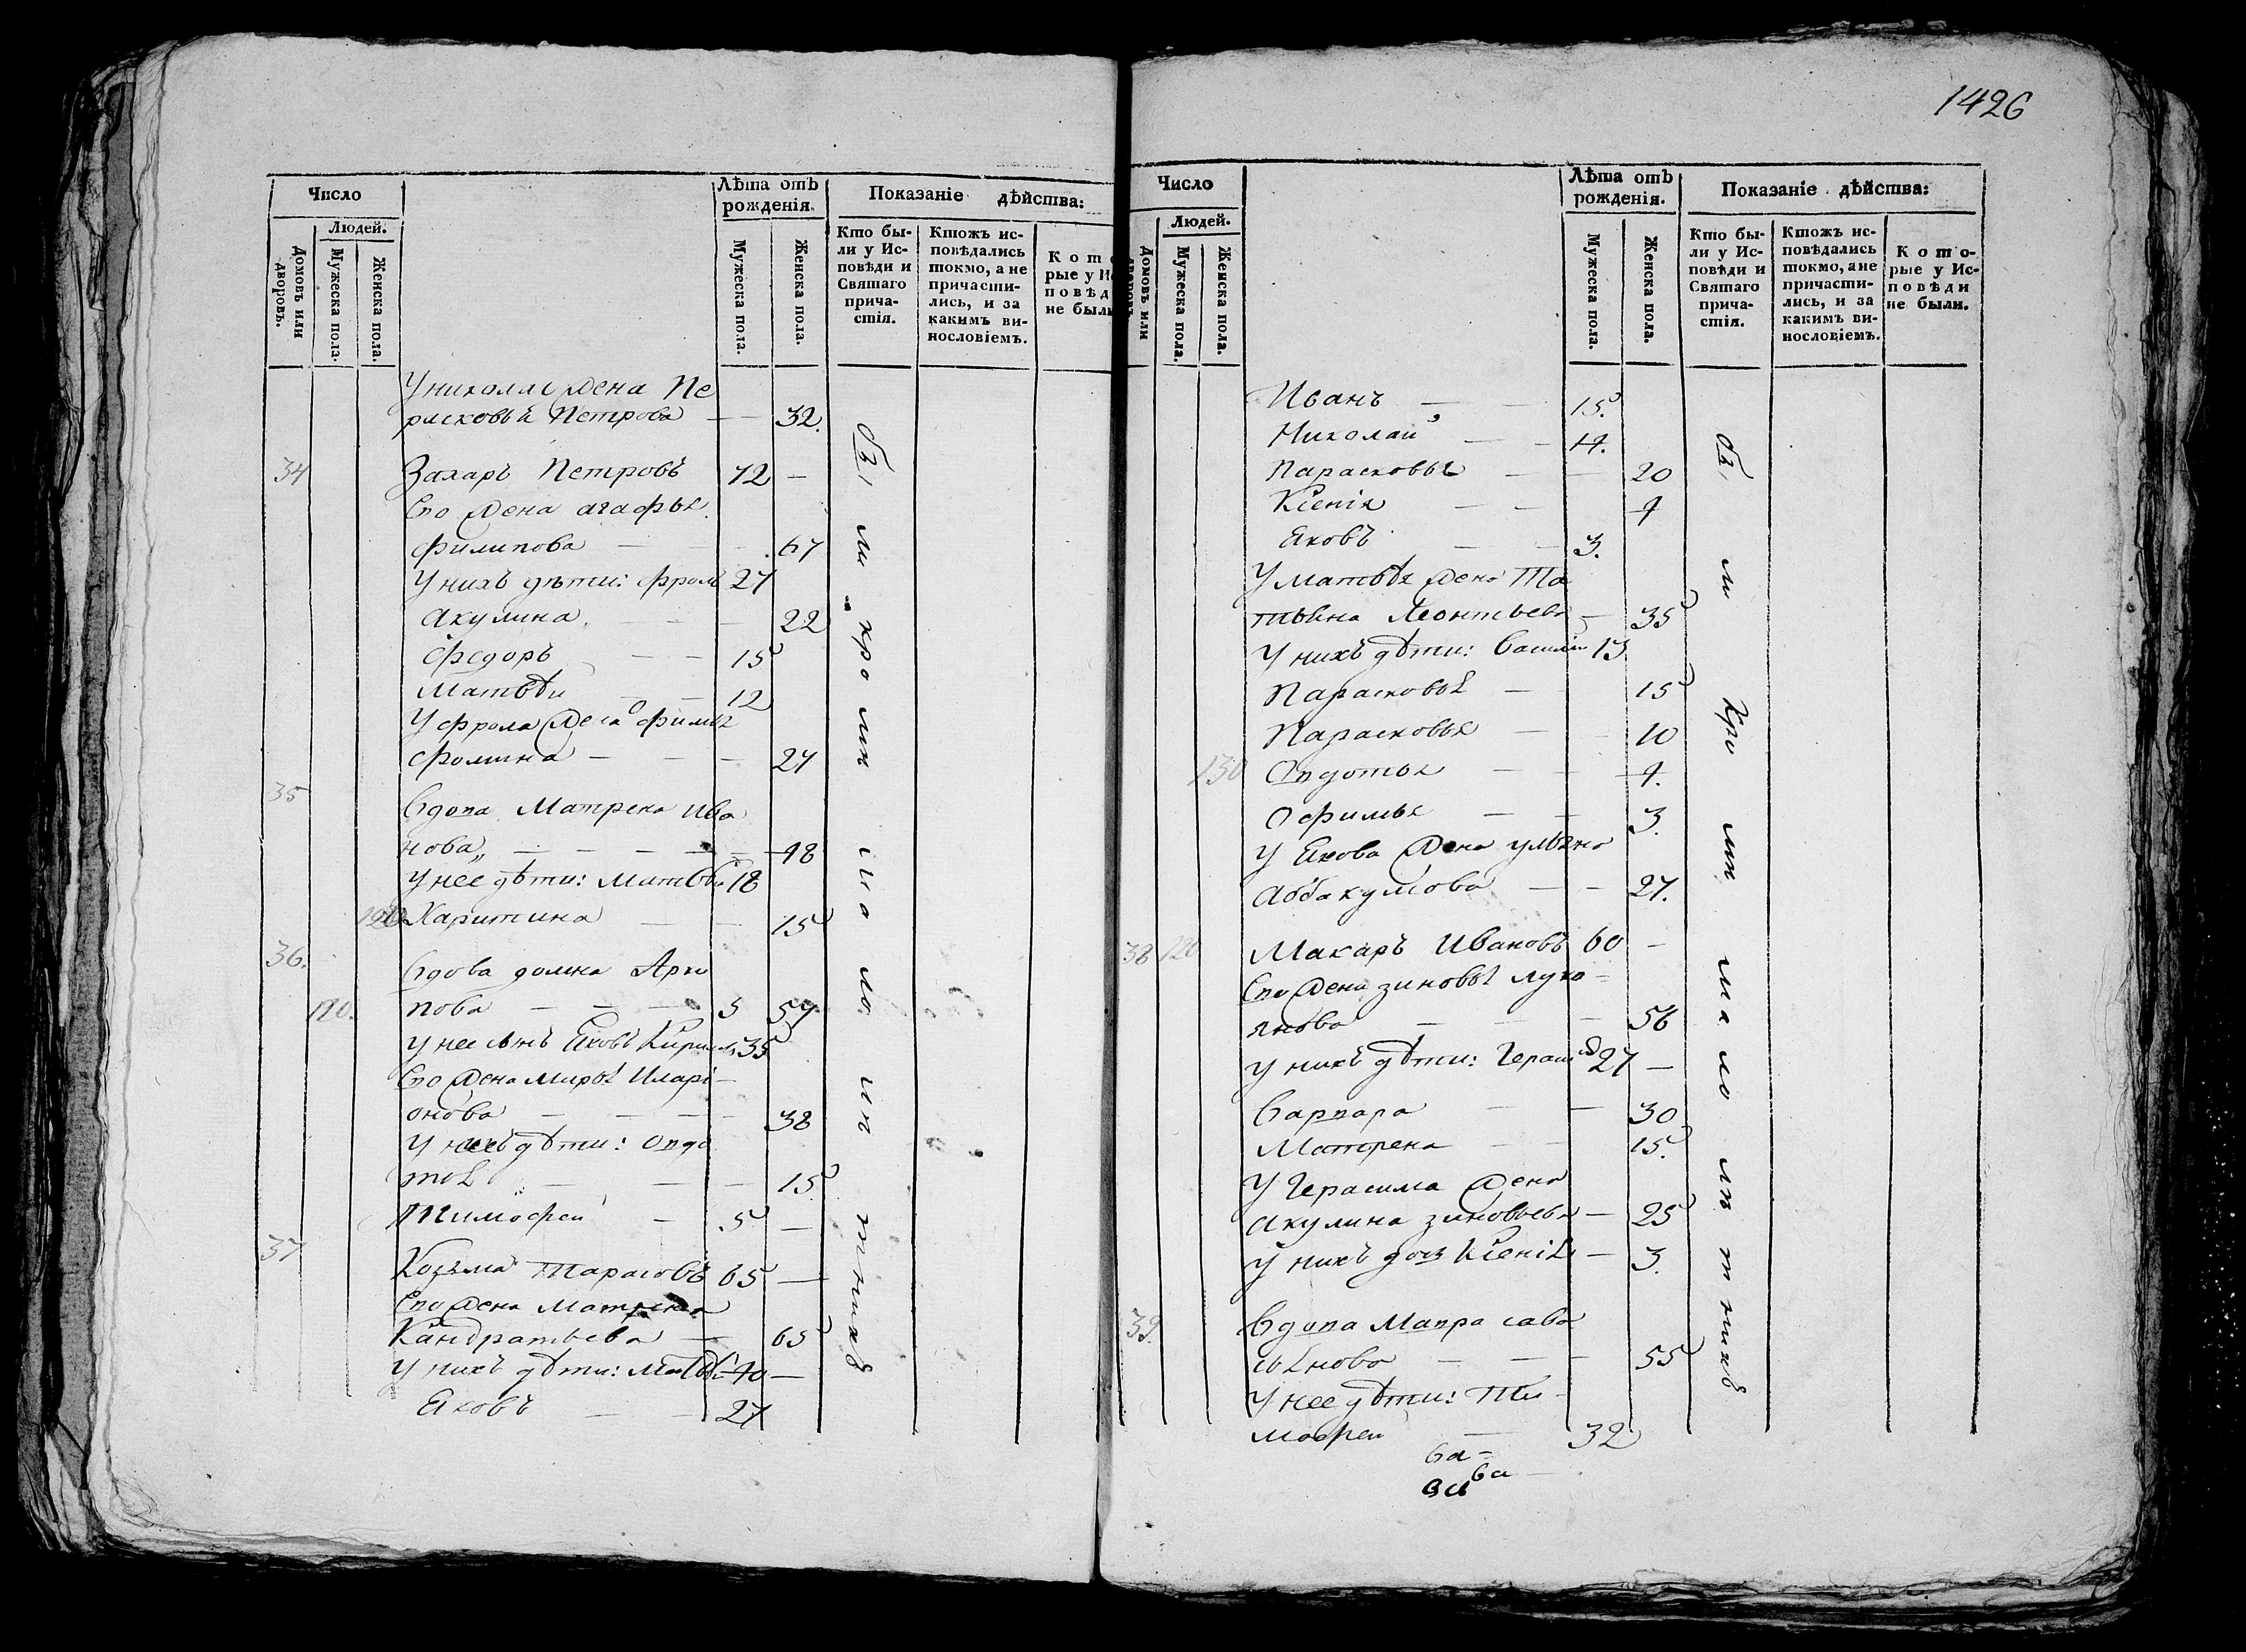 Число
Лѣта отъ рожденія.
Показаніе дѣйства:
Людей.
Домовъ или дворовъ.
Мужеска пола.
Женска пола.
Мужеска пола.
Женска пола.
Кто были у Исповѣди и Святаго причастія.
Ктожъ исповѣдались токмо, а не причастились, и за какимъ винословіемъ.
У николая жена Пе
расковья Петрова — 32.
34 Захаръ Петровъ 72 —
Его жена агафья
филипова — 67
У нихъ дѣти: фролъ 27
акулина — 22
федоръ — 15
матвѣи — 12
У фрола жена
фомина — 27
35 Вдова Матрена ива
нова — 48
У нее дѣти: матвѣи 18
Харитина — 15
36. Вдова домна Архи
120. пова — 57
У нее сынъ Яковъ 35
Его жена марья Иларі
онова — 38
У нихъ дѣти: овдо
тья — 15
Тимофеи — 5 —
37 Козьма тарасовъ 65 —
Его жена матрена
Кандратьева — 65
У нихъ дѣти: матвѣи 40 —
Яковъ — 27
были кромѣ малолѣтнихъ
1426
Число
Лѣта отъ рожденія.
Показаніе дѣйства:
Людей.
Домовъ или
Мужеска пола.
Женска пола.
Мужеска пола.
Женска пола.
Кто были у Исповѣди и Святаго причастія.
Ктожъ исповѣдались токмо, а не причастились, и за какимъ винословіемъ.
Которые у Исповѣди не были.
Иванъ — 15.
Николаи —
Парасковья — 20
Ксенія —
Яковъ — 3.
У матвѣя жена Та
тьяна Леонтьева — 35
У нихъ дѣти: василіи 13
Парасковья — 15
Парасковья — 10
130 Овдотья —
Офимья — 3.
У Якова жена ульяна
аббакумова — 27.
38 Макаръ Ивановъ 60 —
Его жена зиновья лукья
янова — 56
У нихъ дѣти: Герасимъ 27 —
Варвара — 30
Матрена — 15.
У Герасима жена
акулина зиновьева — 25
У нихъ дочь Ксенія — 3.
39. Вдова Мавра сава
стьянова — 55
У нее дѣти: Ти
мофеи — 32
были кромѣ малолѣтнихъ